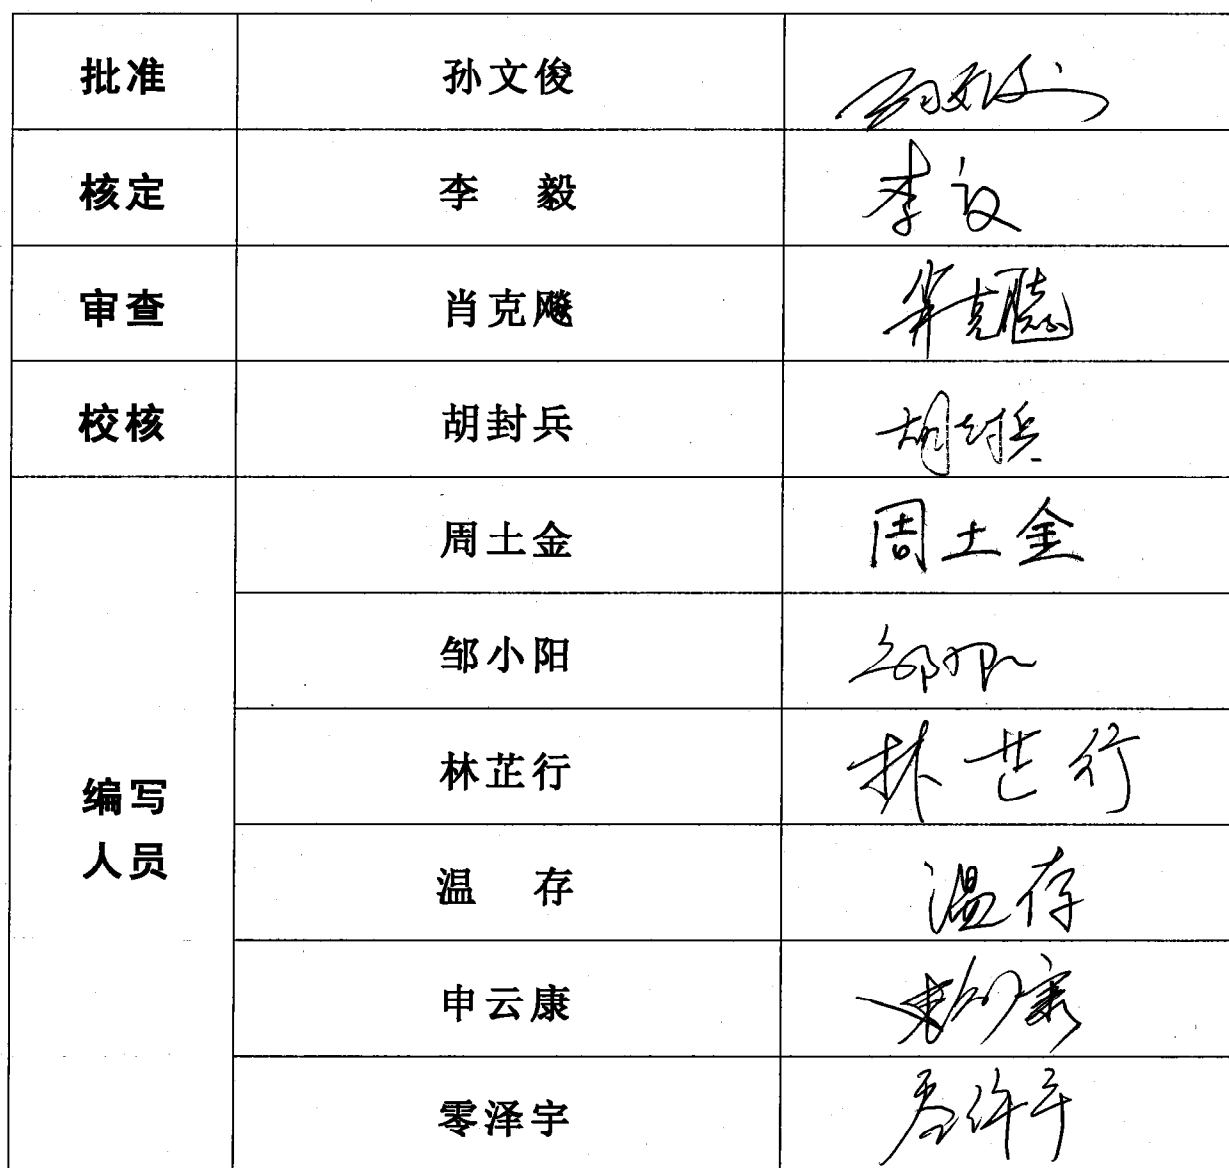 批准 孙文俊 孙文俊
核定 李 毅 李 毅
审查 肖克飚
校核 胡封兵 胡封兵
编写
人员
周土金 周土金
邹小阳
林芷行 林芷行
温 存 温存
申云康
零泽宇